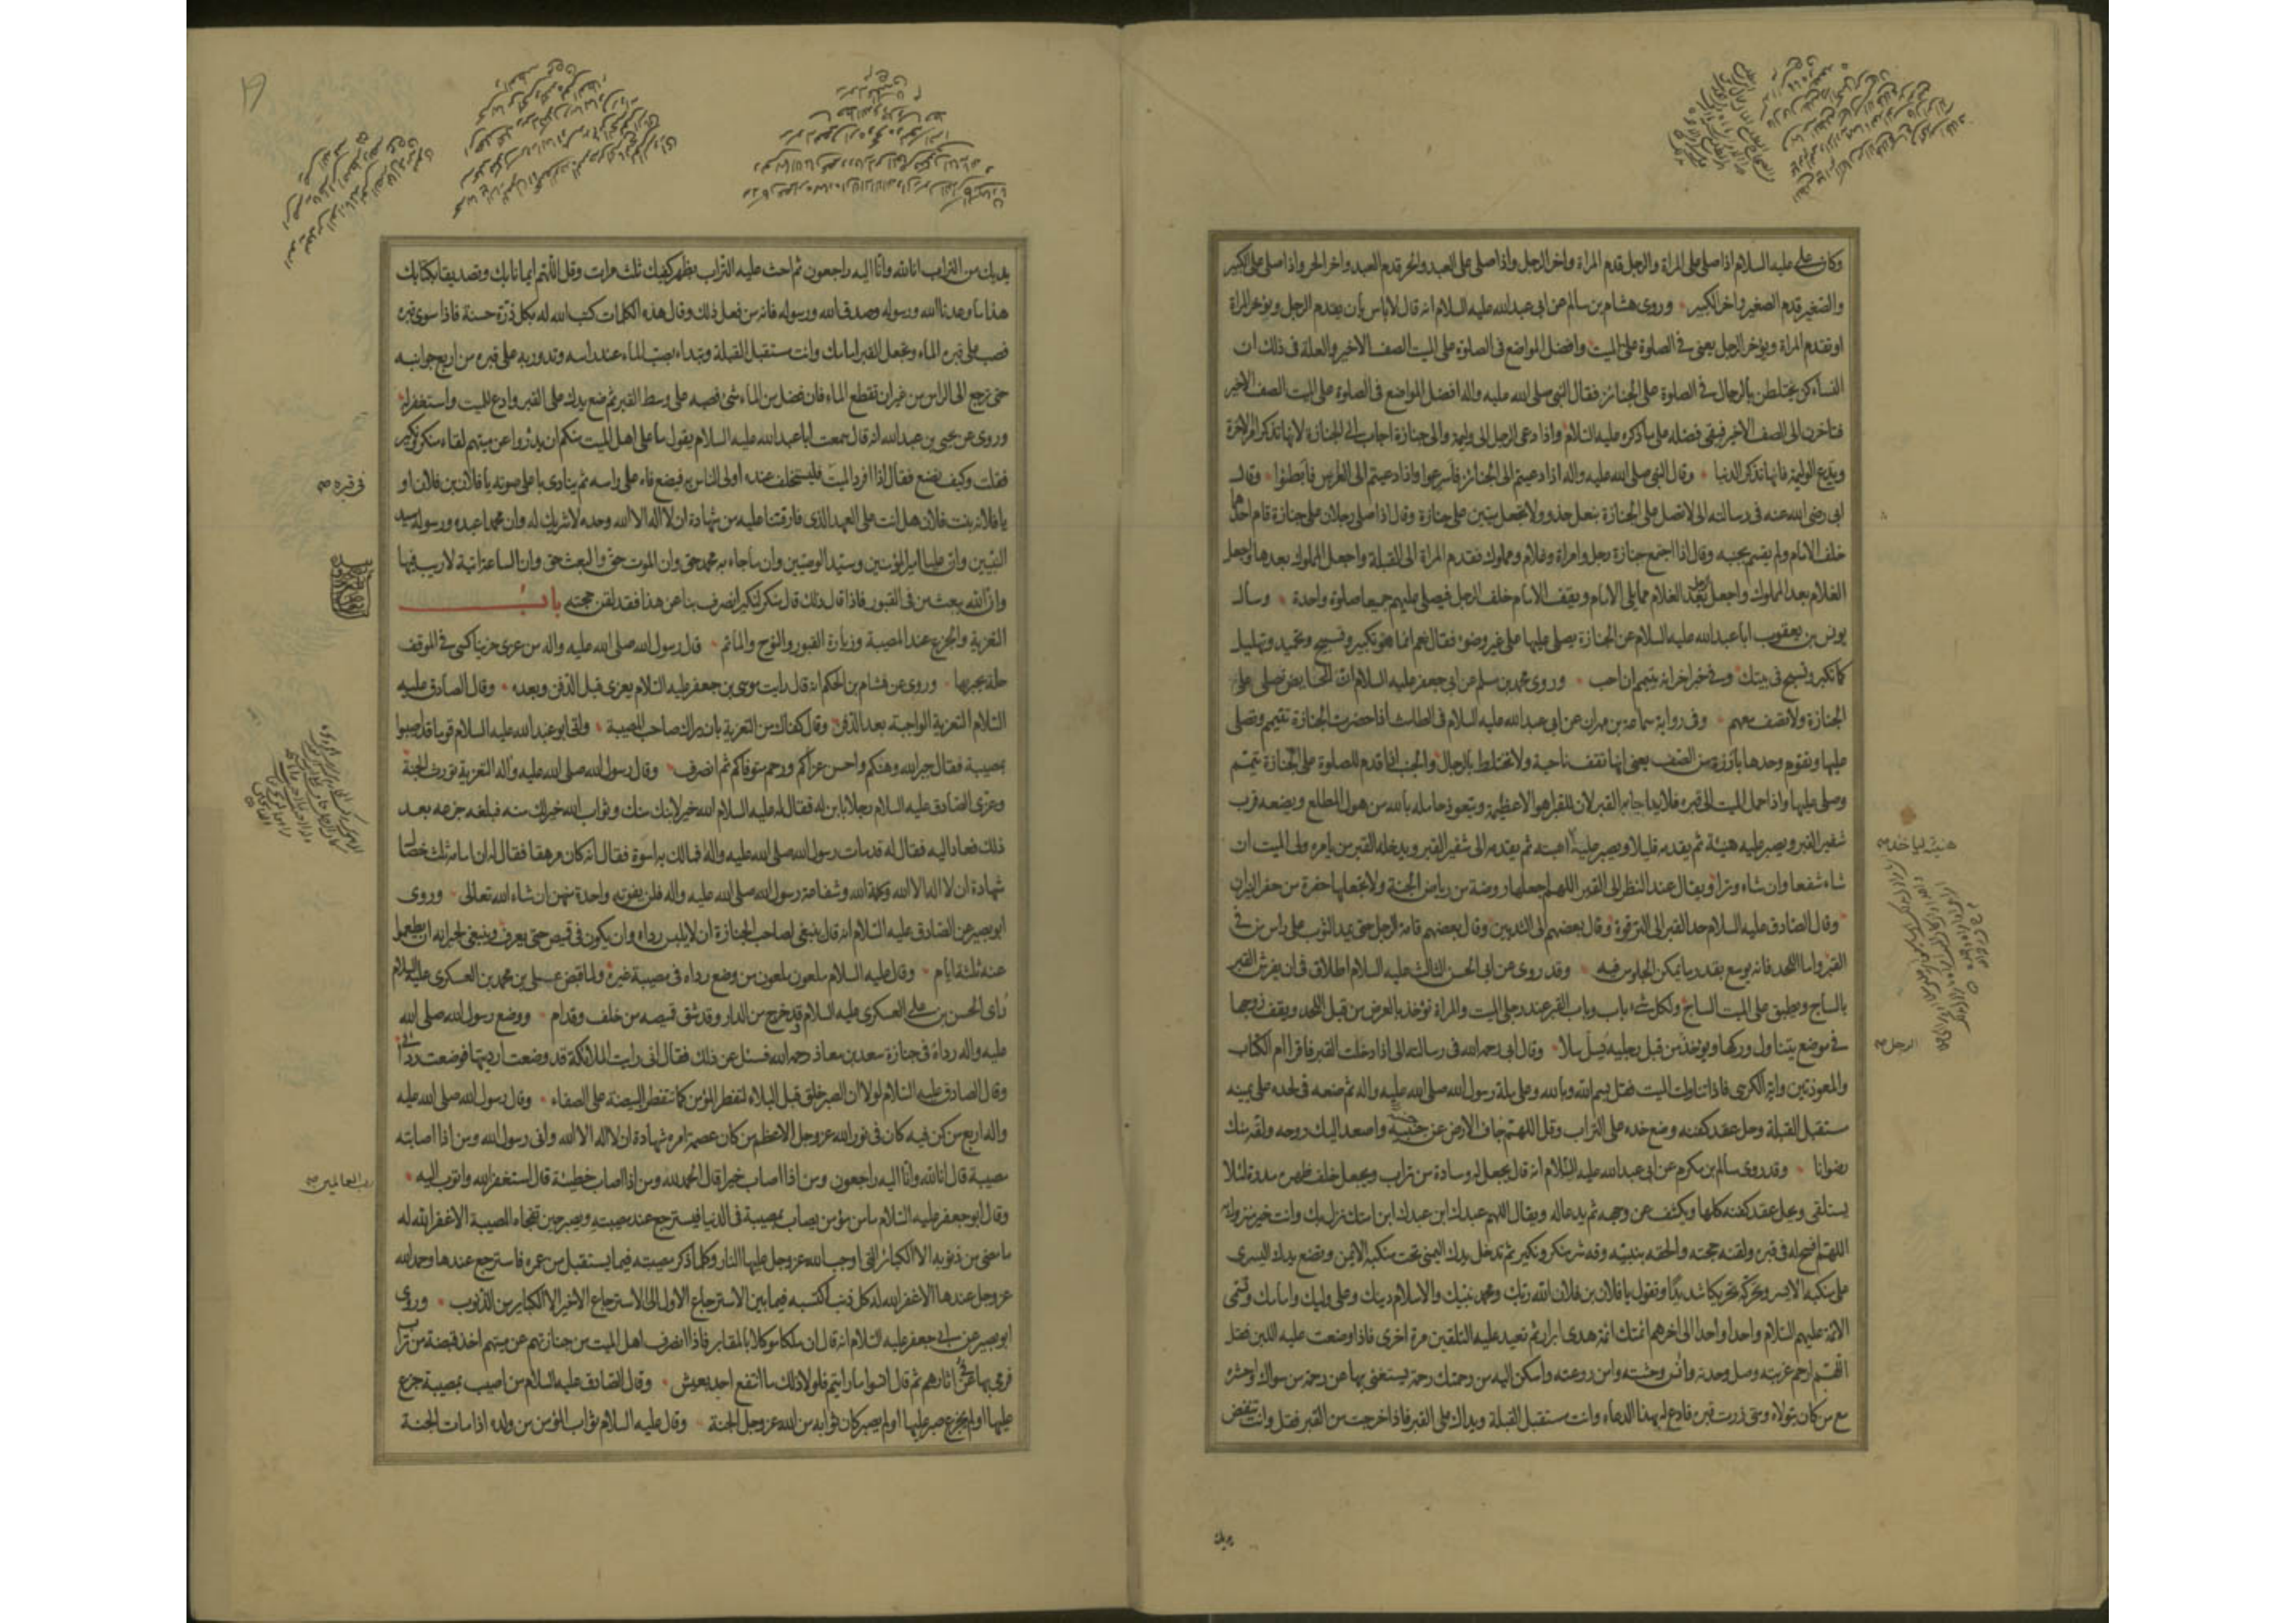 وكان علي عليه السلام اذا صلى على المراة والرجل قدم المراة واخر الرجل واذا صلى على العبد والحر قدم العبد واخر الحر واذا صلى على الكبير
والصغير قدم الصغير واخر الكبير وروى هشام بن سالم عن ابى عبدالله عليه السلام انه قال لا باس بان يقدم الرجل ويؤخر المراة
او تقدم المراة ويؤخر الرجل يعنى فى الصلوة على الميت وافضل المواضع فى الصلوة على الميت الصف الاخير والعلة فى ذلك ان
النساء كن يختلطن بالرجال فى الصلوة على الجنائز فقال النبى صلى الله عليه واله افضل المواضع فى الصلوة على الميت الصف الاخير
فتاخرن الى الصف الاخير فبقى فضله على ما ذكره عليه السلام واذا دعى الرجل الى وليمة والى جنازة اجاب الى الجنازة لانها تذكر امر الاخرة
ويدع الوليمة فانها تذكر الدنيا وقال النبى صلى الله عليه واله اذا دعيتم الى الجنائز فاسرعوا واذا دعيتم الى العرايس فابطئوا وقال
ابى رضى الله عنه فى رسالته الى لا تصل على الجنازة بنعل حذو ولا تجعل ميتين على جنازة وقال اذا صلى رجلان على جنازة قام احدهما
خلف الامام ولم يقم بجنبه وقال اذا اجتمع جنازة رجل وامراة وغلام ومملوك فقدم المراة الى القبلة واجعل المملوك بعدها واجعل
الغلام بعد المملوك واجعل الرجل بعد الغلام مما يلى الامام ويقف الامام خلف الرجل فيصلى عليهم جميعا صلوة واحدة وسال
يونس بن يعقوب ابا عبدالله عليه السلام عن الجنازة يصلى عليها على غير وضوء فقال نعم انما هو تكبير وتسبيح وتحميد وتهليل
كما تكبر وتسبح فى بيتك وفى خبر اخر انه يتيمم ان احب وروى محمد بن مسلم عن ابى جعفر عليه السلام ان الحايض تصلى على
الجنازة ولا تصف معهم وفى رواية سماعة بن مهران عن ابى عبدالله عليه السلام فى الطامث اذا حضرت الجنازة تتيمم وتصلى
عليها وتقوم وحدها بارزة من الصف يعنى انها تقف ناحية ولا تختلط بالرجال والجنب اذا قدم للصلوة على الجنازة تيمم
وصلى عليها واذا حمل الميت الى قبره فلا يفاجا به القبر لان للقبر اهوالا عظيمة ويتعوذ حامله بالله من هول المطلع ويضعه قرب
شفير القبر ويصبر عليه هنيئة ثم يقدمه قليلا ويصبر عليه اهبته ثم يقدمه الى شفير القبر ويدخله القبر من يامره ولى الميت ان
شاء شفعا وان شاء وترا ويقال عند النظر الى القبر اللهم اجعلها روضة من رياض الجنة ولا تجعلها حفرة من حفر النيران
وقال الصادق عليه السلام حد القبر الى الترقوة وقال بعضهم الى الثديين وقال بعضهم قامة الرجل حتى يمد الثوب على راس من فى
القبر واما اللحد فانه يوسع بقدر ما يمكن الجلوس فيه وقد روى عن ابى الحسن الثالث عليه السلام اطلاق فى ان يفرش القبر
بالساج ويطبق على الميت الساج ولكل شىء باب وباب القبر عند رجلى الميت والمراة تؤخذ بالعرض من قبل اللحد ويقف زوجها
فى موضع يتناول وركها ويؤخذ من قبل رجليه يسل سلا وقال ابى رحمه الله فى رسالته الى اذا دخلت القبر فاقرا ام الكتاب
والمعوذتين واية الكرسى فاذا تناولت الميت فقل بسم الله وبالله وعلى ملة رسول الله صلى الله عليه واله ثم ضعه فى لحده على يمينه
مستقبل القبلة وحل عقد كفنه وضع خده على التراب وقل اللهم جاف الارض عن جنبيه واصعد اليك روحه ولقه منك
رضوانا وقد روى سالم بن مكرم عن ابى عبدالله عليه السلام انه قال يجعل له وسادة من تراب ويجعل خلف ظهره مدرة لئلا
يستلقى ويحل عقد كفنه كلها ويكشف عن وجهه ثم يدعا له ويقال اللهم عبدك ابن عبدك ابن امتك نزل بك وانت خير منزول به
اللهم افسح له فى قبره ولقنه حجته والحقه بنبيه وقه شر منكر ونكير ثم تدخل يدك اليمنى تحت منكبه الايمن وتضع يدك اليسرى
على منكبه الايسر وتحركه تحريكا شديدا وتقول يا فلان بن فلان الله ربك ومحمد نبيك والاسلام دينك وعلى وليك وامامك وتسمى
الائمة عليهم السلام واحدا واحدا الى اخرهم ائمتك ائمة هدى ابرار ثم تعيد عليه التلقين مرة اخرى فاذا وضعت عليه اللبن فقل
اللهم ارحم غربته وصل وحدته وانس وحشته وامن روعته واسكن اليه من رحمتك رحمة يستغنى بها عن رحمة من سواك واحشره
مع من كان يتولاه ومتى زرت قبره فادع له بهذا الدعاء وانت مستقبل القبلة ويداك على القبر فاذا خرجت من القبر فقل وانت تنفض
الرجل صح
يديك
يديك من التراب انا لله وانا اليه راجعون ثم احث عليه التراب بظهر كفيك ثلث مرات وقل اللهم ايمانا بك وتصديقا بكتابك
هذا ما وعدنا الله ورسوله وصدق الله ورسوله فانه من فعل ذلك وقال هذه الكلمات كتب الله له بكل ذرة حسنة فاذا سوى قبره
فصب على قبره الماء وتجعل القبر امامك وانت مستقبل القبلة وتبداء بصب الماء عند راسه وتدور به على قبره من اربع جوانبه
حتى ترجع الى الراس من غير ان تقطع الماء فان فضل من الماء شئ فصبه على وسط القبر ثم ضع يدك على القبر وادع للميت واستغفر له
وروى عن يحيى بن عبدالله انه قال سمعت ابا عبدالله عليه السلام يقول ما على اهل الميت منكم ان يدرؤا عن ميتهم لقاء منكر ونكير
فقلت وكيف نصنع فقال اذا افرد الميت فليستخلف عنده اولى الناس به فيضع فاه على راسه ثم ينادى باعلى صوته يا فلان بن فلان او
يا فلانه بنت فلان هل انت على العهد الذى فارقتنا عليه من شهادة ان لا اله الا الله وحده لا شريك له وان محمدا عبده ورسوله سيد
النبيين وان عليا امير المؤمنين وسيد الوصيين وان ما جاء به محمد حق وان الموت حق والبعث حق وان الساعة اتية لا ريب فيها
وان الله يبعث من فى القبور فاذا قال ذلك قال منكر لنكير انصرف بنا عن هذا فقد لقن حجته باب
التعزية والجزع عند المصيبة وزيارة القبور والنوح والماتم قال رسول الله صلى الله عليه واله من عزى حزينا كسى فى الموقف
حلة يحبر بها وروى عن هشام بن الحكم انه قال رايت موسى بن جعفر عليه السلام يعزى قبل الدفن وبعده وقال الصادق عليه
السلام التعزية الواجبة بعد الدفن وقال كفاك من التعزية بان يراك صاحب المصيبة واتى ابو عبد الله عليه السلام قوما قد اصيبوا
بمصيبة فقال جبر الله وهنكم واحسن عزاكم ورحم متوفاكم ثم انصرف وقال رسول الله صلى الله عليه واله التعزية تورث الجنة
وعزى الصادق عليه السلام رجلا بابن له فقال له عليه السلام الله خير لابنك منك وثواب الله خير لك منه فبلغه جزعه بعد
ذلك فعاد اليه فقال له قد مات رسول الله صلى الله عليه واله فما لك به اسوة فقال انه كان مرهقا فقال له ان امامه ثلث خصال
شهادة ان لا اله الا الله ورحمة الله وشفاعة رسول الله صلى الله عليه واله فلن يفوته واحدة منهن ان شاء الله تعالى وروى
ابو بصير عن الصادق عليه السلام انه قال ينبغى لصاحب الجنازة ان لا يلبس رداء وان يكون فى قميص حتى يعرف وينبغى لجيرانه ان يطعموا
عنه ثلثة ايام وقال عليه السلام ملعون ملعون من وضع رداه فى مصيبة غيره ولما قبض على بن محمد بن العسكرى عليه السلام
راى الحسن بن على العسكرى عليه السلام قد خرج من الدار وقد شق قميصه من خلف وقدام ووضع رسول الله صلى الله
عليه واله رداه فى جنازة سعد بن معاذ رحمه الله فسئل عن ذلك فقال انى رايت الملائكة قد وضعت ارديتها فوضعت ردائى
وقال الصادق عليه السلام لولا ان الصبر خلق قبل البلاء لتفطر المؤمن كما تتفطر البيضة على الصفاء وقال رسول الله صلى الله عليه
واله اربع من كن فيه كان فى نور الله عز وجل الاعظم من كان عصمة امره شهادة ان لا اله الا الله وانى رسول الله ومن اذا اصابته
مصيبة قال انا لله وانا اليه راجعون ومن اذا اصاب خيرا قال الحمد لله ومن اذا اصاب خطيئة قال استغفر الله واتوب اليه
وقال ابو جعفر عليه السلام ما من مؤمن يصاب بمصيبة فى الدنيا فيسترجع عند مصيبته ويصبر حين تفجاه المصيبة الا غفر الله له
ما مضى من ذنوبه الا الكبائر التى اوجب الله عز وجل عليها النار وكلما ذكر مصيبته فيما يستقبل من عمره فاسترجع عندها وحمد الله
عز وجل عندها الا غفر الله له كل ذنب اكتسبه فيما بين الاسترجاع الاول الى الاسترجاع الاخير الا الكبائر من الذنوب وروى
ابو بصير عن ابى جعفر عليه السلام انه قال ان ملكا موكلا بالمقابر فاذا انصرف اهل الميت من جنازتهم عن ميتهم اخذ قبضة من تراب
فرمى بها فى اثارهم ثم قال انسوا ما رايتم فلولا ذلك ما انتفع احد بعيش وقال الصادق عليه السلام من اصيب بمصيبة جزع
عليها او لم يجزع صبر عليها او لم يصبر كان ثوابه من الله عز وجل الجنة وقال عليه السلام ثواب المؤمن من ولده اذا مات الجنة
فى قبره صح
رب العالمين صح